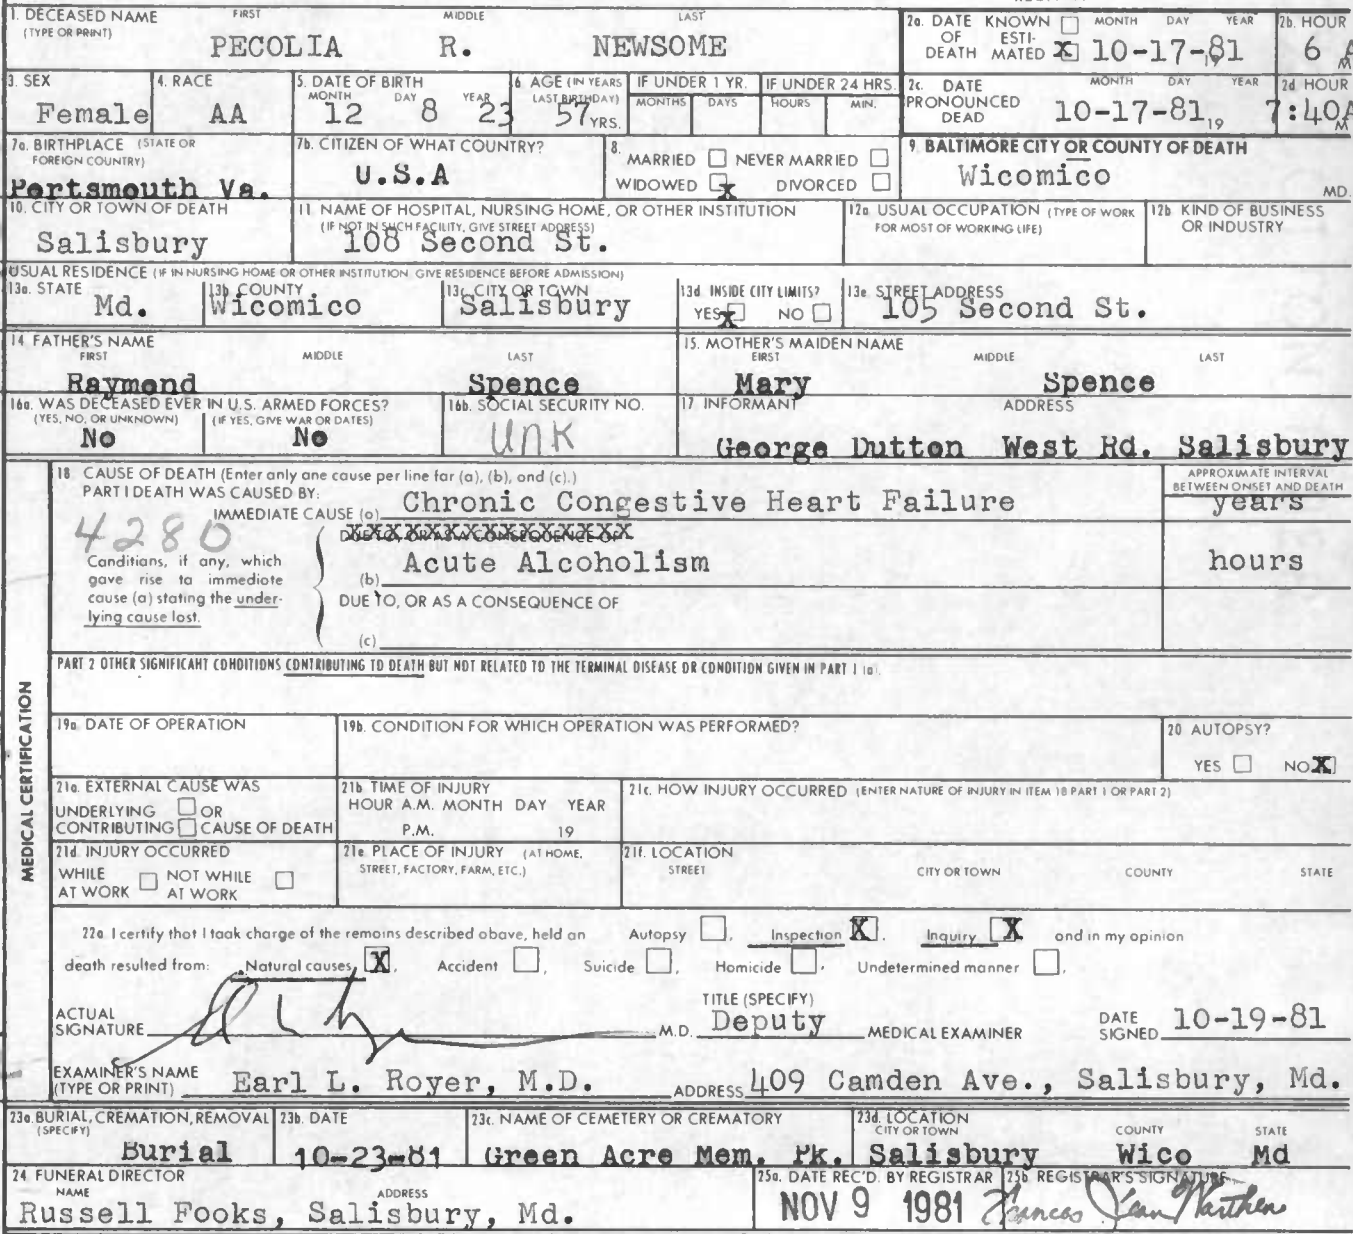 1. DECEASED NAME FIRST MIDDLE LAST
(TYPE OR PRINT)
PECOLIA R. NEWSOME
2a. DATE KNOWN MONTH DAY YEAR
OF ESTI-
DEATH MATED X 10-17-81
19
2b. HOUR
6 A
M
3. SEX
Female
4. RACE
AA
5. DATE OF BIRTH
MONTH DAY YEAR
12 8 23
6 AGE (IN YEARS
LAST BIRTHDAY)
57 YRS.
IF UNDER 1 YR.
MONTHS DAYS
IF UNDER 24 HRS.
HOURS MIN.
2c. DATE MONTH DAY YEAR
PRONOUNCED
DEAD 10-17-81, 19
2d HOUR
7:40A
M
7a. BIRTHPLACE (STATE OR
FOREIGN COUNTRY)
Portsmouth Va.
7b. CITIZEN OF WHAT COUNTRY?
U.S.A
8.
MARRIED NEVER MARRIED
WIDOWED X DIVORCED
9. BALTIMORE CITY OR COUNTY OF DEATH
Wicomico
MD.
10. CITY OR TOWN OF DEATH
Salisbury
11. NAME OF HOSPITAL, NURSING HOME, OR OTHER INSTITUTION
(IF NOT IN SUCH FACILITY, GIVE STREET ADDRESS)
108 Second St.
12a. USUAL OCCUPATION (TYPE OF WORK
FOR MOST OF WORKING LIFE)
12b. KIND OF BUSINESS
OR INDUSTRY
USUAL RESIDENCE (IF IN NURSING HOME OR OTHER INSTITUTION GIVE RESIDENCE BEFORE ADMISSION)
13a. STATE
Md.
13b. COUNTY
Wicomico
13c. CITY OR TOWN
Salisbury
13d. INSIDE CITY LIMITS?
YES X NO
13e. STREET ADDRESS
105 Second St.
14. FATHER'S NAME
FIRST MIDDLE LAST
Raymond Spence
15. MOTHER'S MAIDEN NAME
FIRST MIDDLE LAST
Mary Spence
16a. WAS DECEASED EVER IN U.S. ARMED FORCES?
(YES, NO, OR UNKNOWN) (IF YES, GIVE WAR OR DATES)
No No
16b. SOCIAL SECURITY NO.
UNK
17 INFORMANT ADDRESS
George Dutton West Rd. Salisbury
MEDICAL CERTIFICATION
18. CAUSE OF DEATH (Enter only one cause per line for (a), (b), and (c).)
PART I DEATH WAS CAUSED BY:
IMMEDIATE CAUSE (a) Chronic Congestive Heart Failure
APPROXIMATE INTERVAL
BETWEEN ONSET AND DEATH
years
4280
DUE TO, OR AS A CONSEQUENCE OF
Conditions, if any, which
gave rise to immediate
cause (a) stating the under-
lying cause last.
(b) Acute Alcoholism
hours
DUE TO, OR AS A CONSEQUENCE OF
(c)
PART 2 OTHER SIGNIFICANT CONDITIONS CONTRIBUTING TO DEATH BUT NOT RELATED TO THE TERMINAL DISEASE OR CONDITION GIVEN IN PART 1 (a).
19a. DATE OF OPERATION
19b. CONDITION FOR WHICH OPERATION WAS PERFORMED?
20 AUTOPSY?
YES NO X
21a. EXTERNAL CAUSE WAS
UNDERLYING OR
CONTRIBUTING CAUSE OF DEATH
21b. TIME OF INJURY
HOUR A.M. MONTH DAY YEAR
P.M. 19
21c. HOW INJURY OCCURRED (ENTER NATURE OF INJURY IN ITEM 18 PART 1 OR PART 2)
21d. INJURY OCCURRED
WHILE NOT WHILE
AT WORK AT WORK
21e PLACE OF INJURY (AT HOME,
STREET, FACTORY, FARM, ETC.)
21f. LOCATION
STREET CITY OR TOWN COUNTY STATE
22a. I certify that I took charge of the remains described above, held an Autopsy, Inspection X, Inquiry X and in my opinion
death resulted from: Natural causes X, Accident, Suicide, Homicide, Undetermined manner,
ACTUAL
SIGNATURE M.D.
TITLE (SPECIFY)
Deputy MEDICAL EXAMINER
DATE
SIGNED 10-19-81
EXAMINER'S NAME
(TYPE OR PRINT) Earl L. Royer, M.D. ADDRESS 409 Camden Ave., Salisbury, Md.
23a. BURIAL, CREMATION, REMOVAL
(SPECIFY)
Burial
23b. DATE
10-23-81
23c. NAME OF CEMETERY OR CREMATORY
Green Acre Mem. Pk.
23d. LOCATION
CITY OR TOWN COUNTY STATE
Salisbury Wico Md
24 FUNERAL DIRECTOR
NAME ADDRESS
Russell Fooks, Salisbury, Md.
25a. DATE REC'D. BY REGISTRAR
NOV 9 1981
25b REGISTRAR'S SIGNATURE
Frances Jean Warthen